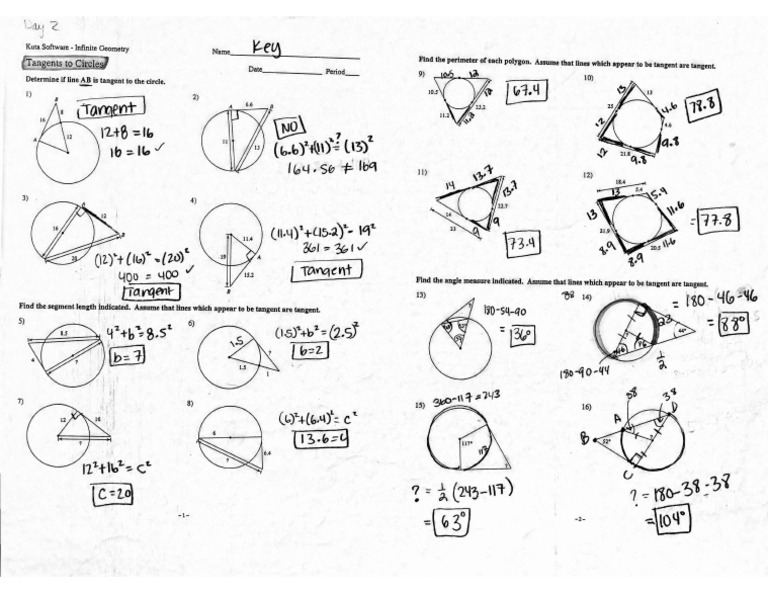 Day 2
Kuta Software - Infinite Geometry
Name Key
Tangents to Circles
Date Period
Determine if line AB is tangent to the circle.
1)
Tangent
B
16
8
A
12
12+8=16
16=16 ✓
2)
A
6.6
B
11
13
NO
(6.6)²+(11)² ?= (13)²
164.56 ≠ 169
3)
A
12
16
20
B
(12)²+(16)²=(20)²
400=400 ✓
Tangent
4)
11.4
A
19
15.2
B
(11.4)²+(15.2)-19²
361=361 ✓
Tangent
Find the segment length indicated. Assume that lines which appear to be tangent are tangent.
5)
8.5
4
?
4²+b²=8.5²
b=7
6)
1.5
?
1.5
1
(1.5)²+b²=(2.5)²
b=2
7)
12
16
?
12²+16²=c²
c=20
8)
6
6.4
?
(6)²+(6.4)²=c²
13.6=c
-1-
Find the perimeter of each polygon. Assume that lines which appear to be tangent are tangent.
9)
10.5
12
10.5
12
23.2
11.2
11.2
67.4
10)
13
13
25
4.6
4.6
12
12
21.8
9.8
9.8
78.8
11)
14
13.7
13.7
22.7
14
23
9
9
73.4
12)
18.4
13
5.4
5.4
13
11.6
21.9
8.9
8.9
20.5
11.6
=77.8
Find the angle measure indicated. Assume that lines which appear to be tangent are tangent.
13)
180-54-90
=36°
88
14)
=180-46-46
=88°
44°
46
46
1/2
180-90-44
15)
360-117=243
117°
117
?
?=1/2(243-117)
=63°
16)
38
38
A
D
B
52°
?
C
?=180-38-38
=104°
-2-